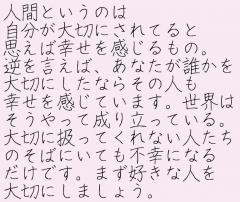 人間というのは
自分が大切にされてると
思えば幸せを感じるもの。
逆を言えば、あなたが誰かを
大切にしたならその人も
幸せを感じています。世界は
そうやって成り立っている。
大切に扱ってくれない人たち
のそばにいても不幸になる
だけです。まず好きな人を
大切にしましょう。